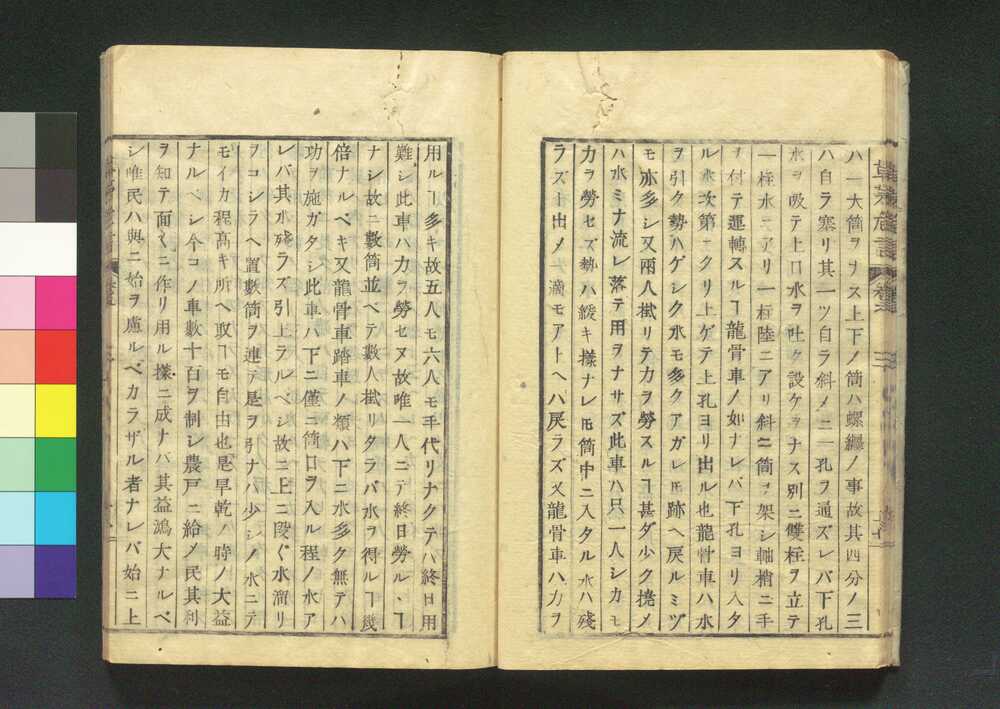 ハ一大筒ヲナス上下ノ筒ハ螺纒ノ事故其四分ノ三
ハ自ラ塞リ其一ツ自ラ斜メニ一孔ヲ通ズレバ下孔
水ヲ吸テ上口水ヲ吐ク設ケヲナス別ニ雙柱ヲ立テ
一柱水ニアリ一柱陸ニアリ斜ニ筒ヲ架シ軸梢ニ手
ヲ付テ運轉スルヿ龍骨車ノ如ナレバ下孔ヨリ入タ
ル水次第ニクリ上ゲテ上孔ヨリ出ル也龍骨車ハ水
ヲ引ク勢ハゲシク水モ多クアガレ𪜈跡ヘ戻ルミヅ
モ亦多シ又兩人掛リテカヲ勞スルヿ甚ダ少ク撓メ
ハ水ミナ流レ落テ用ヲナサズ此車ハ只一人シカモ
力ヲ勞セズ勢ハ緩キ樣ナレ𪜈筒中ニ入タル水ハ殘
ラズ上出メ一滴モアトヘハ戻ラズ又龍骨車ハ力ヲ
用ルヿ多キ故五人モ六人モ手代リナクテハ終日用
難シ此車ハ力ヲ勞セヌ故唯一人ニテ終日勞ルヽヿ
ナシ故ニ數筒並ベテ數人掛リタラバ水ヲ得ルヿ幾
倍ナルベキ又龍骨車踏車ノ類ハ下ニ水多ク無テハ
功ヲ施ガタシ此車ハ下ニ僅ニ筒口ヲ入ル程ノ水ア
レバ其水殘ラズ引上ラルベシ故ニ上ニ段〻水溜リ
ヲコシラヘ置數筒ヲ連テ是ヲ引ナバ少シノ水ニテ
モイカ程高キ所ヘ取ヿモ自由也是旱乾ノ時ノ大益
ナルベシ今コノ車數十百ヲ制シ農戸ニ給メ民其利
ヲ知テ面〻ニ作リ用ル樣ニ成ナバ其益鴻大ナルベ
シ唯民ハ與ニ始ヲ慮ルベカラザル者ナレバ始ニ上